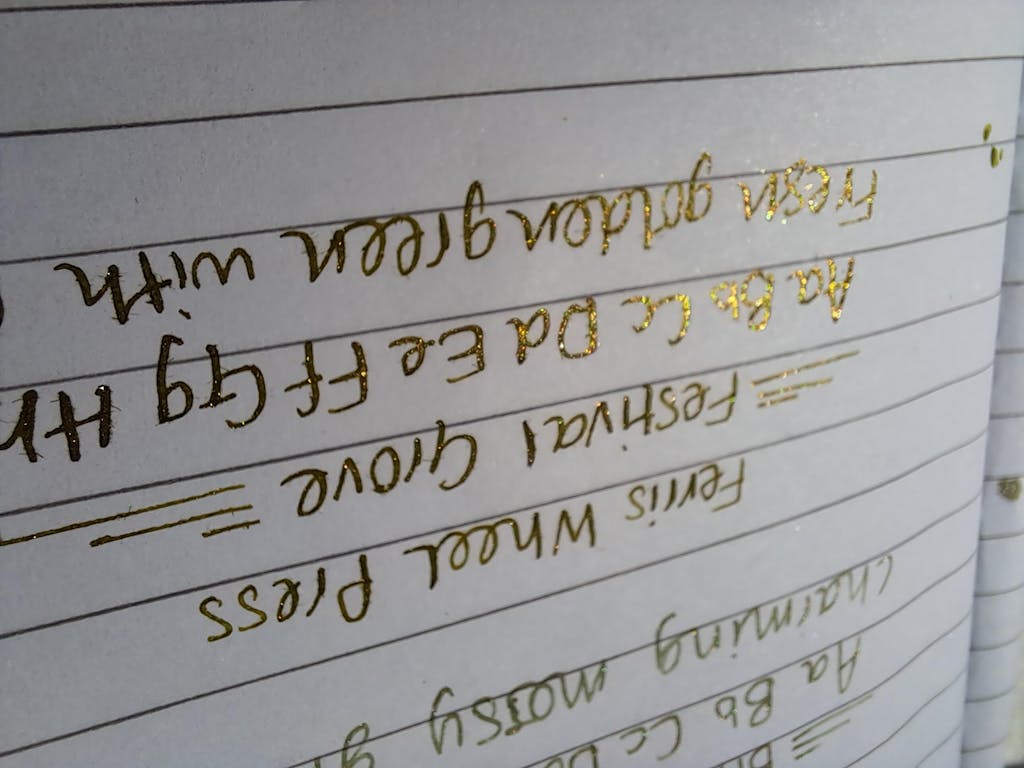 Aa Bb Cc D
Charming mossy g
Ferris Wheel Press
Festival Grove
Aa Bb Cc Dd Ee Ff Gg Hh
Fresh golden green with